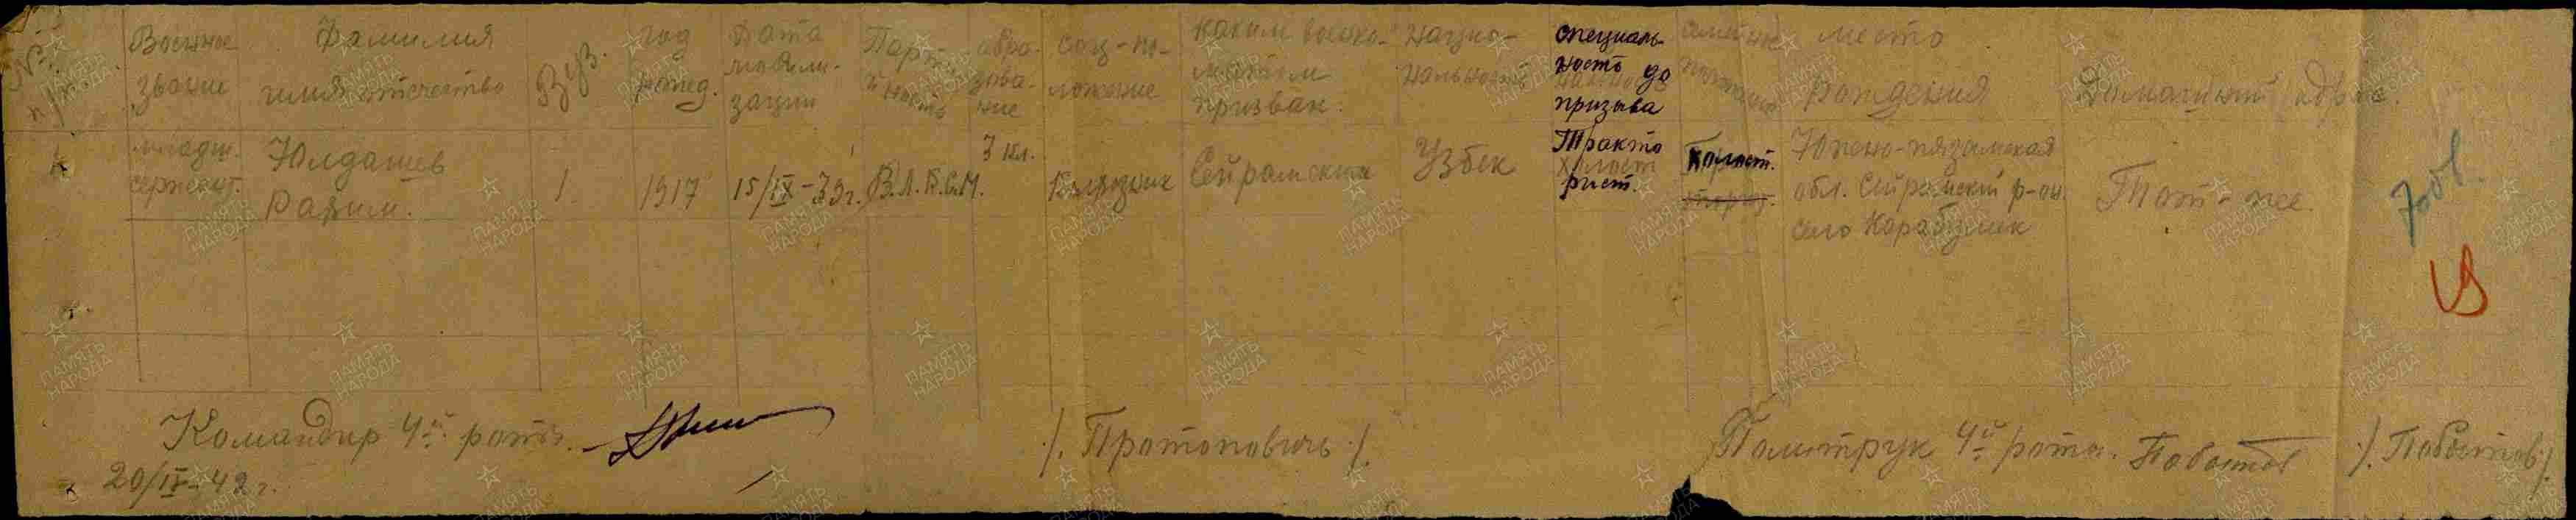 № п/п
Военное звание
Фамилия имя отчество
Вуз.
год рожд.
Дата мобили-зации
Парт-й ность
обра-зова-ние
соц-по-ложение
каким военко-матом призван.
нацио-нальность
специаль-ность до призыва
место рождения
Домашний адрес.
1
младш. сержант.
Юлдашев Рахим.
1
1917
15/IX-39г.
В.Л.К.С.М.
3 кл.
Колхозник
Сейрамским
Узбек
Тракто рист.
Холост.
Южно-казахская
обл. Сейрамский р-он.
село Карабулак
Тот-же.
Командир 4й роты.
/. Протопович /.
Политрук 4й роты.
20/IV-42г.